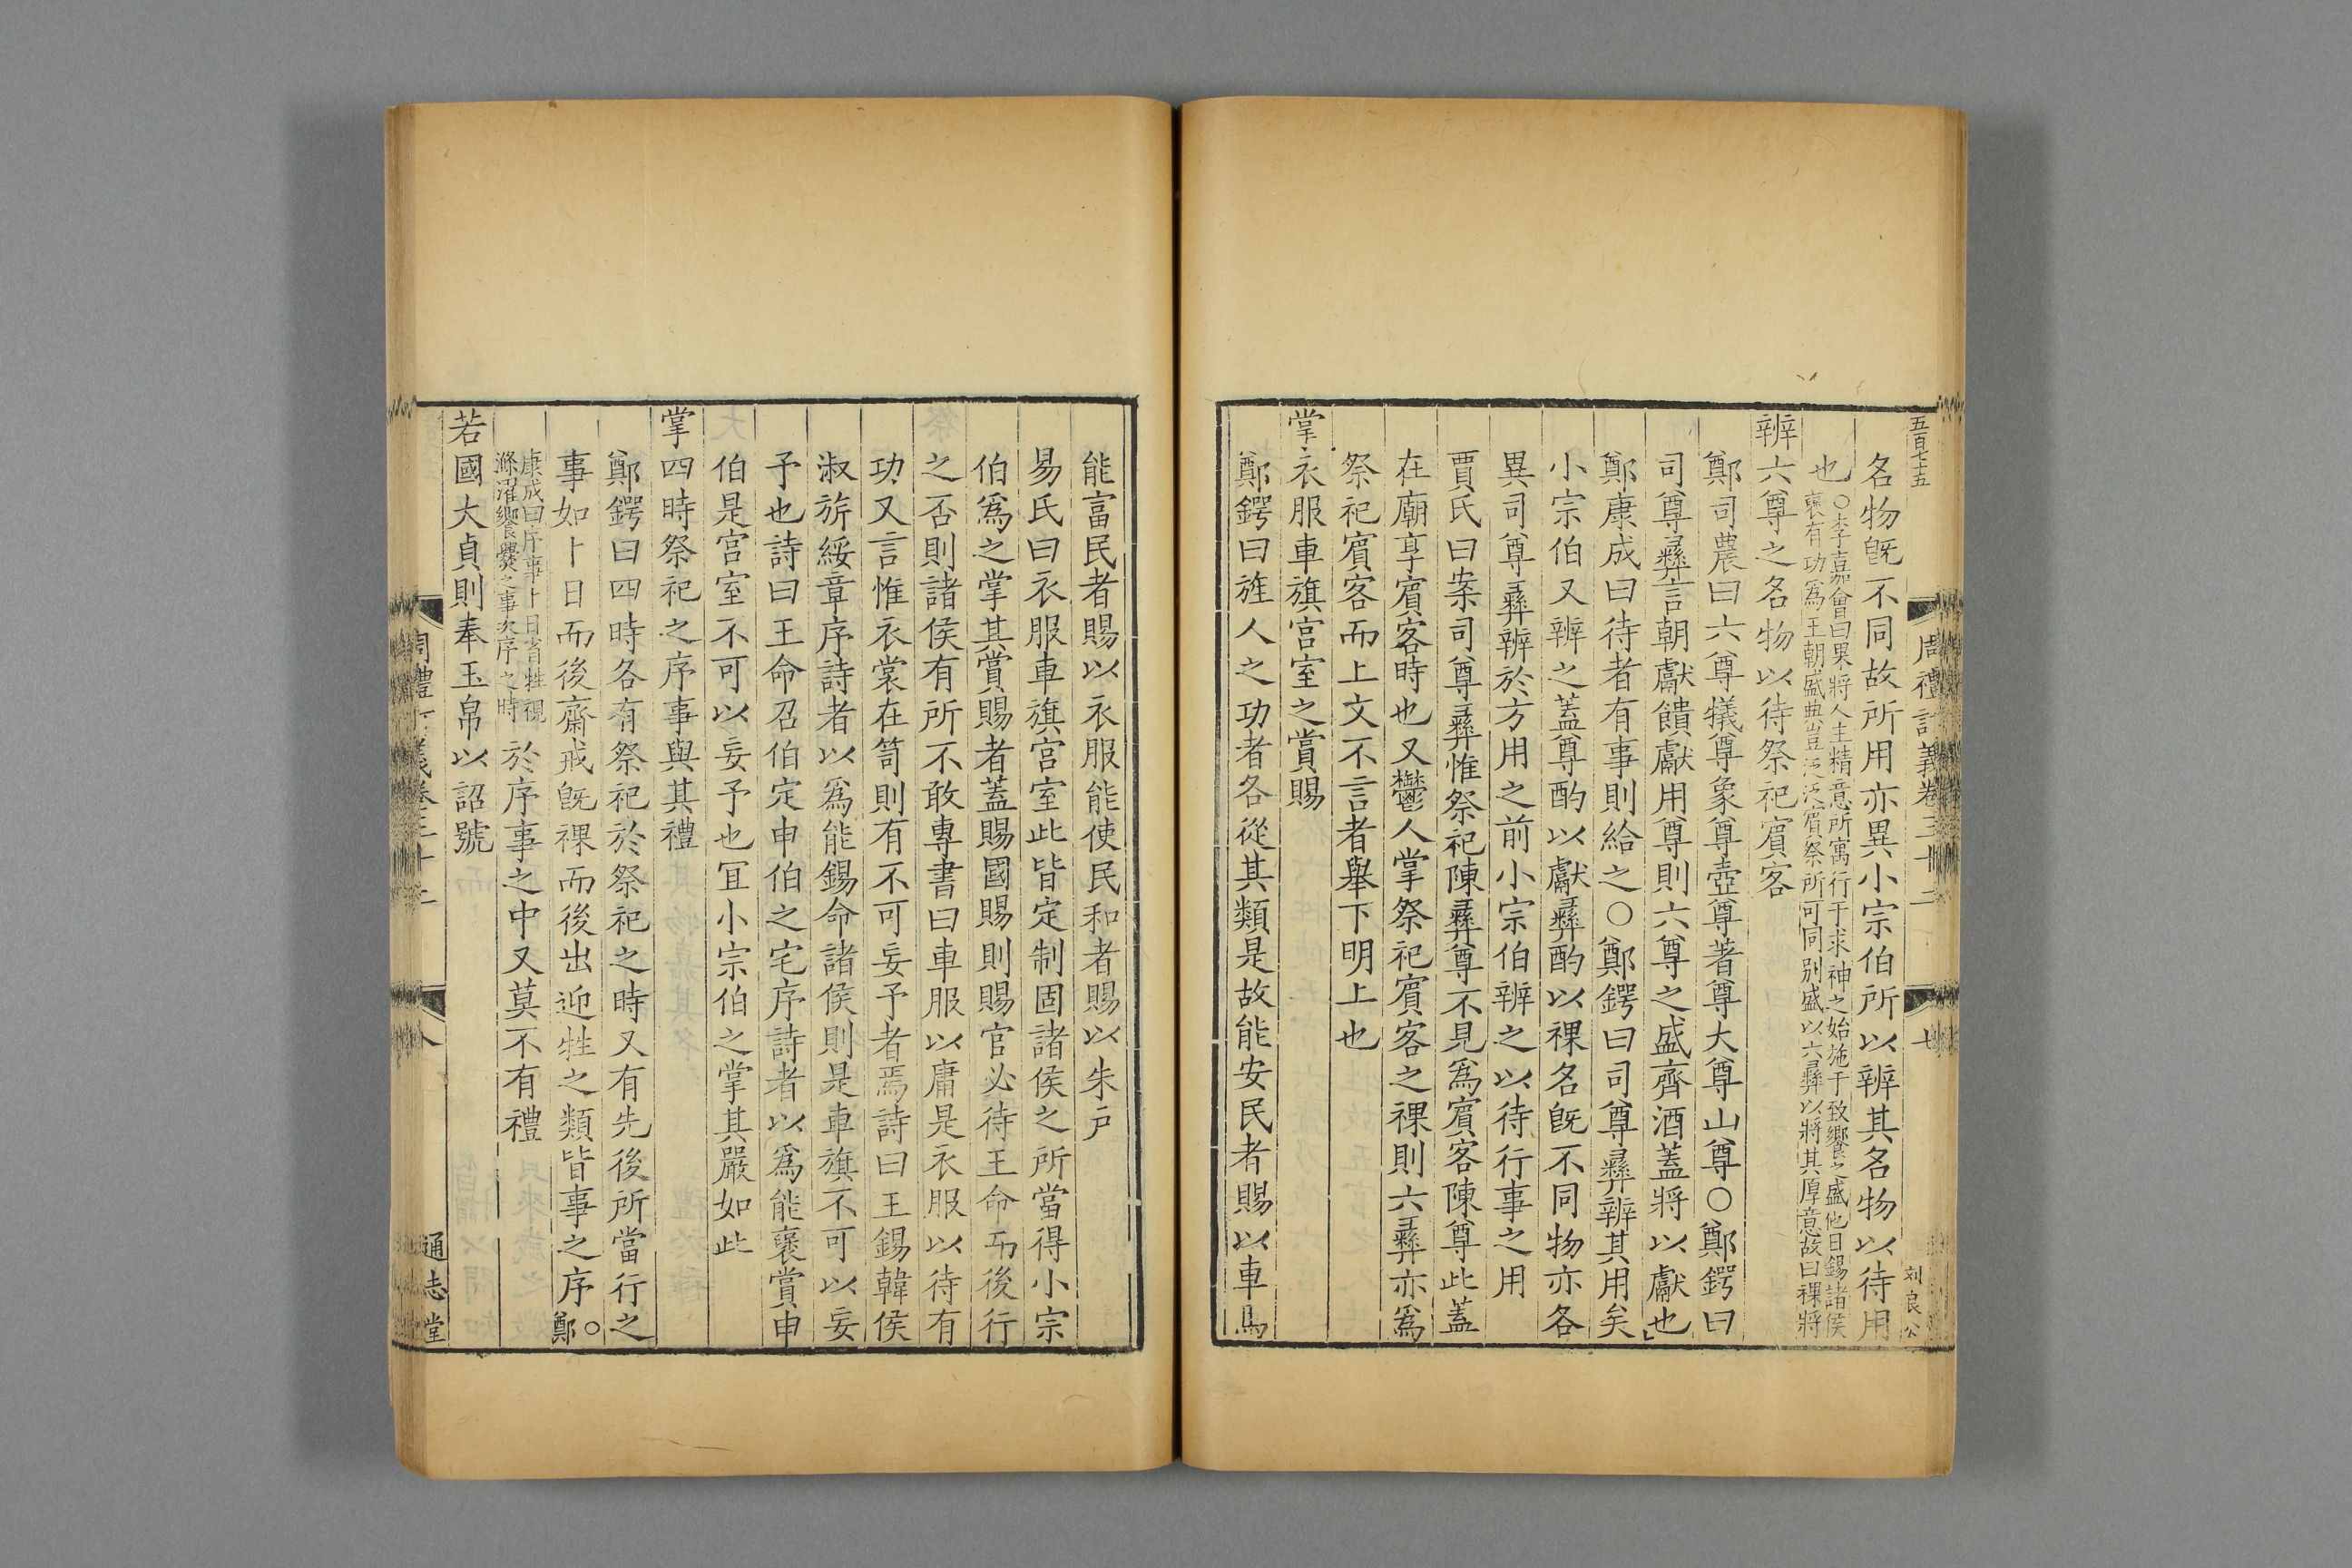 五百七十五
周禮訂義卷三十二
七
刘良公
名物旣不同故所用亦異小宗伯所以辨其名物以待用
也○李嘉會曰果將人主精意所寓行于求神之始施于致饗之盛他日錫諸侯
褒有功爲王朝盛典豈泛泛賓祭所可同別盛以六彝以將其厚意故曰祼將
辨六尊之名物以待祭祀賓客
鄭司農曰六尊犧尊象尊壺尊著尊大尊山尊○鄭鍔曰
司尊彝言朝獻饋獻用尊則六尊之盛齊酒蓋將以獻也
鄭康成曰待者有事則給之○鄭鍔曰司尊彝辨其用矣
小宗伯又辨之蓋尊酌以獻彝酌以祼名旣不同物亦各
異司尊彝辨於方用之前小宗伯辨之以待行事之用
賈氏曰案司尊彝惟祭祀陳彝尊不見爲賓客陳尊此蓋
在廟享賓客時也又鬱人掌祭祀賓客之祼則六彝亦爲
祭祀賓客而上文不言者舉下明上也
掌衣服車旗宮室之賞賜
鄭鍔曰旌人之功者各從其類是故能安民者賜以車馬
能富民者賜以衣服能使民和者賜以朱戶
易氏曰衣服車旗宮室此皆定制固諸侯之所當得小宗
伯爲之掌其賞賜者蓋賜國賜則賜官必待王命而後行
之否則諸侯有所不敢專書曰車服以庸是衣服以待有
功又言惟衣裳在笥則有不可妄予者焉詩曰王錫韓侯
淑旂綏章序詩者以爲能錫命諸侯則是車旗不可以妄
予也詩曰王命召伯定申伯之宅序詩者以爲能褒賞申
伯是宮室不可以妄予也冝小宗伯之掌其嚴如此
掌四時祭祀之序事與其禮
鄭鍔曰四時各有祭祀於祭祀之時又有先後所當行之
事如卜日而後齋戒旣祼而後出迎牲之類皆事之序○鄭
康成曰序事卜日省牲視
滌濯饔爨之事次序之時於序事之中又莫不有禮
若國大貞則奉玉帛以詔號
周禮訂義卷三十二
八
通志堂